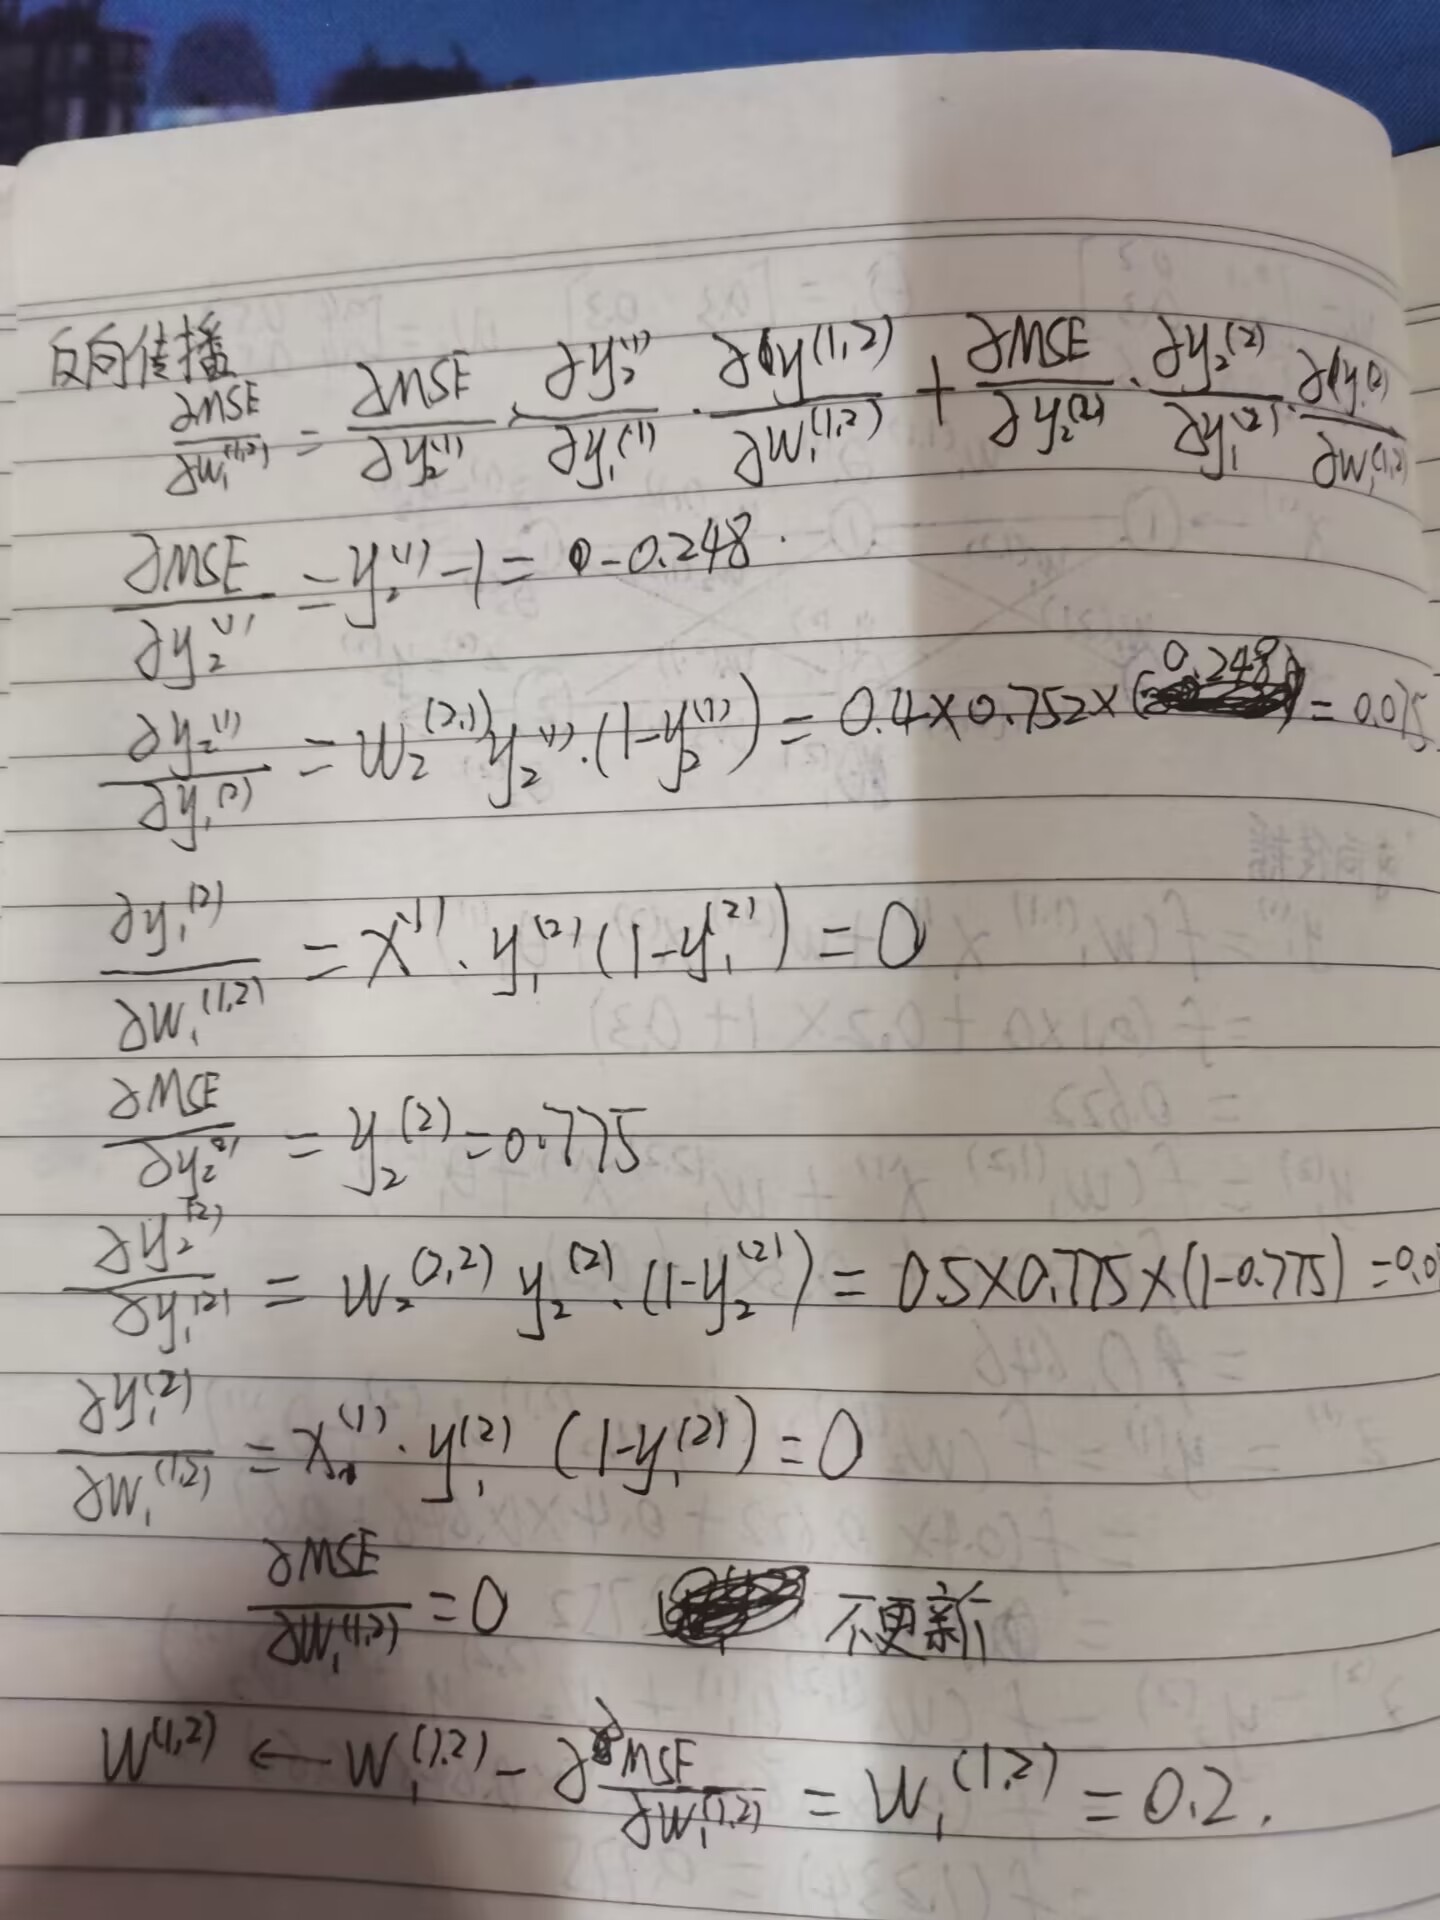 反向传播
∂MSE/∂W₁^(1,2) = ∂MSE/∂y₂^(1) · ∂y₂^(1)/∂y₁^(1) · ∂y^(1,2)/∂W₁^(1,2) + ∂MSE/∂y₂^(2) · ∂y₂^(2)/∂y₁^(2) · ∂y^(2)/∂W₁^(1,2)
∂MSE/∂y₂^(1) = y₂^(1) - 1 = -0.248.
∂y₂^(1)/∂y₁^(2) = W₂^(2,1) y₂^(1) · (1-y₂^(1)) = 0.4×0.752×(0.248) = 0.075
∂y₁^(2)/∂W₁^(1,2) = X^(1) · y₁^(2) (1-y₁^(2)) = 0
∂MSE/∂y₂^(2) = y₂^(2) = 0.775
∂y₂^(2)/∂y₁^(2) = W₂^(2,2) y₂^(2) · (1-y₂^(2)) = 0.5×0.775×(1-0.775) = 0.0
∂y₁^(2)/∂W₁^(1,2) = X^(1) · y₁^(2) (1-y₁^(2)) = 0
∂MSE/∂W₁^(1,2) = 0 不更新
W^(1,2) ← W₁^(1,2) - ∂ ∂MSE/∂W₁^(1,2) = W₁^(1,2) = 0.2.